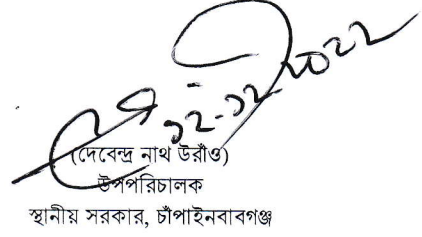 ১২-১২-২০২২
(দেবেন্দ্র নাথ উরাঁও)
উপপরিচালক
স্থানীয় সরকার, চাঁপাইনবাবগঞ্জ